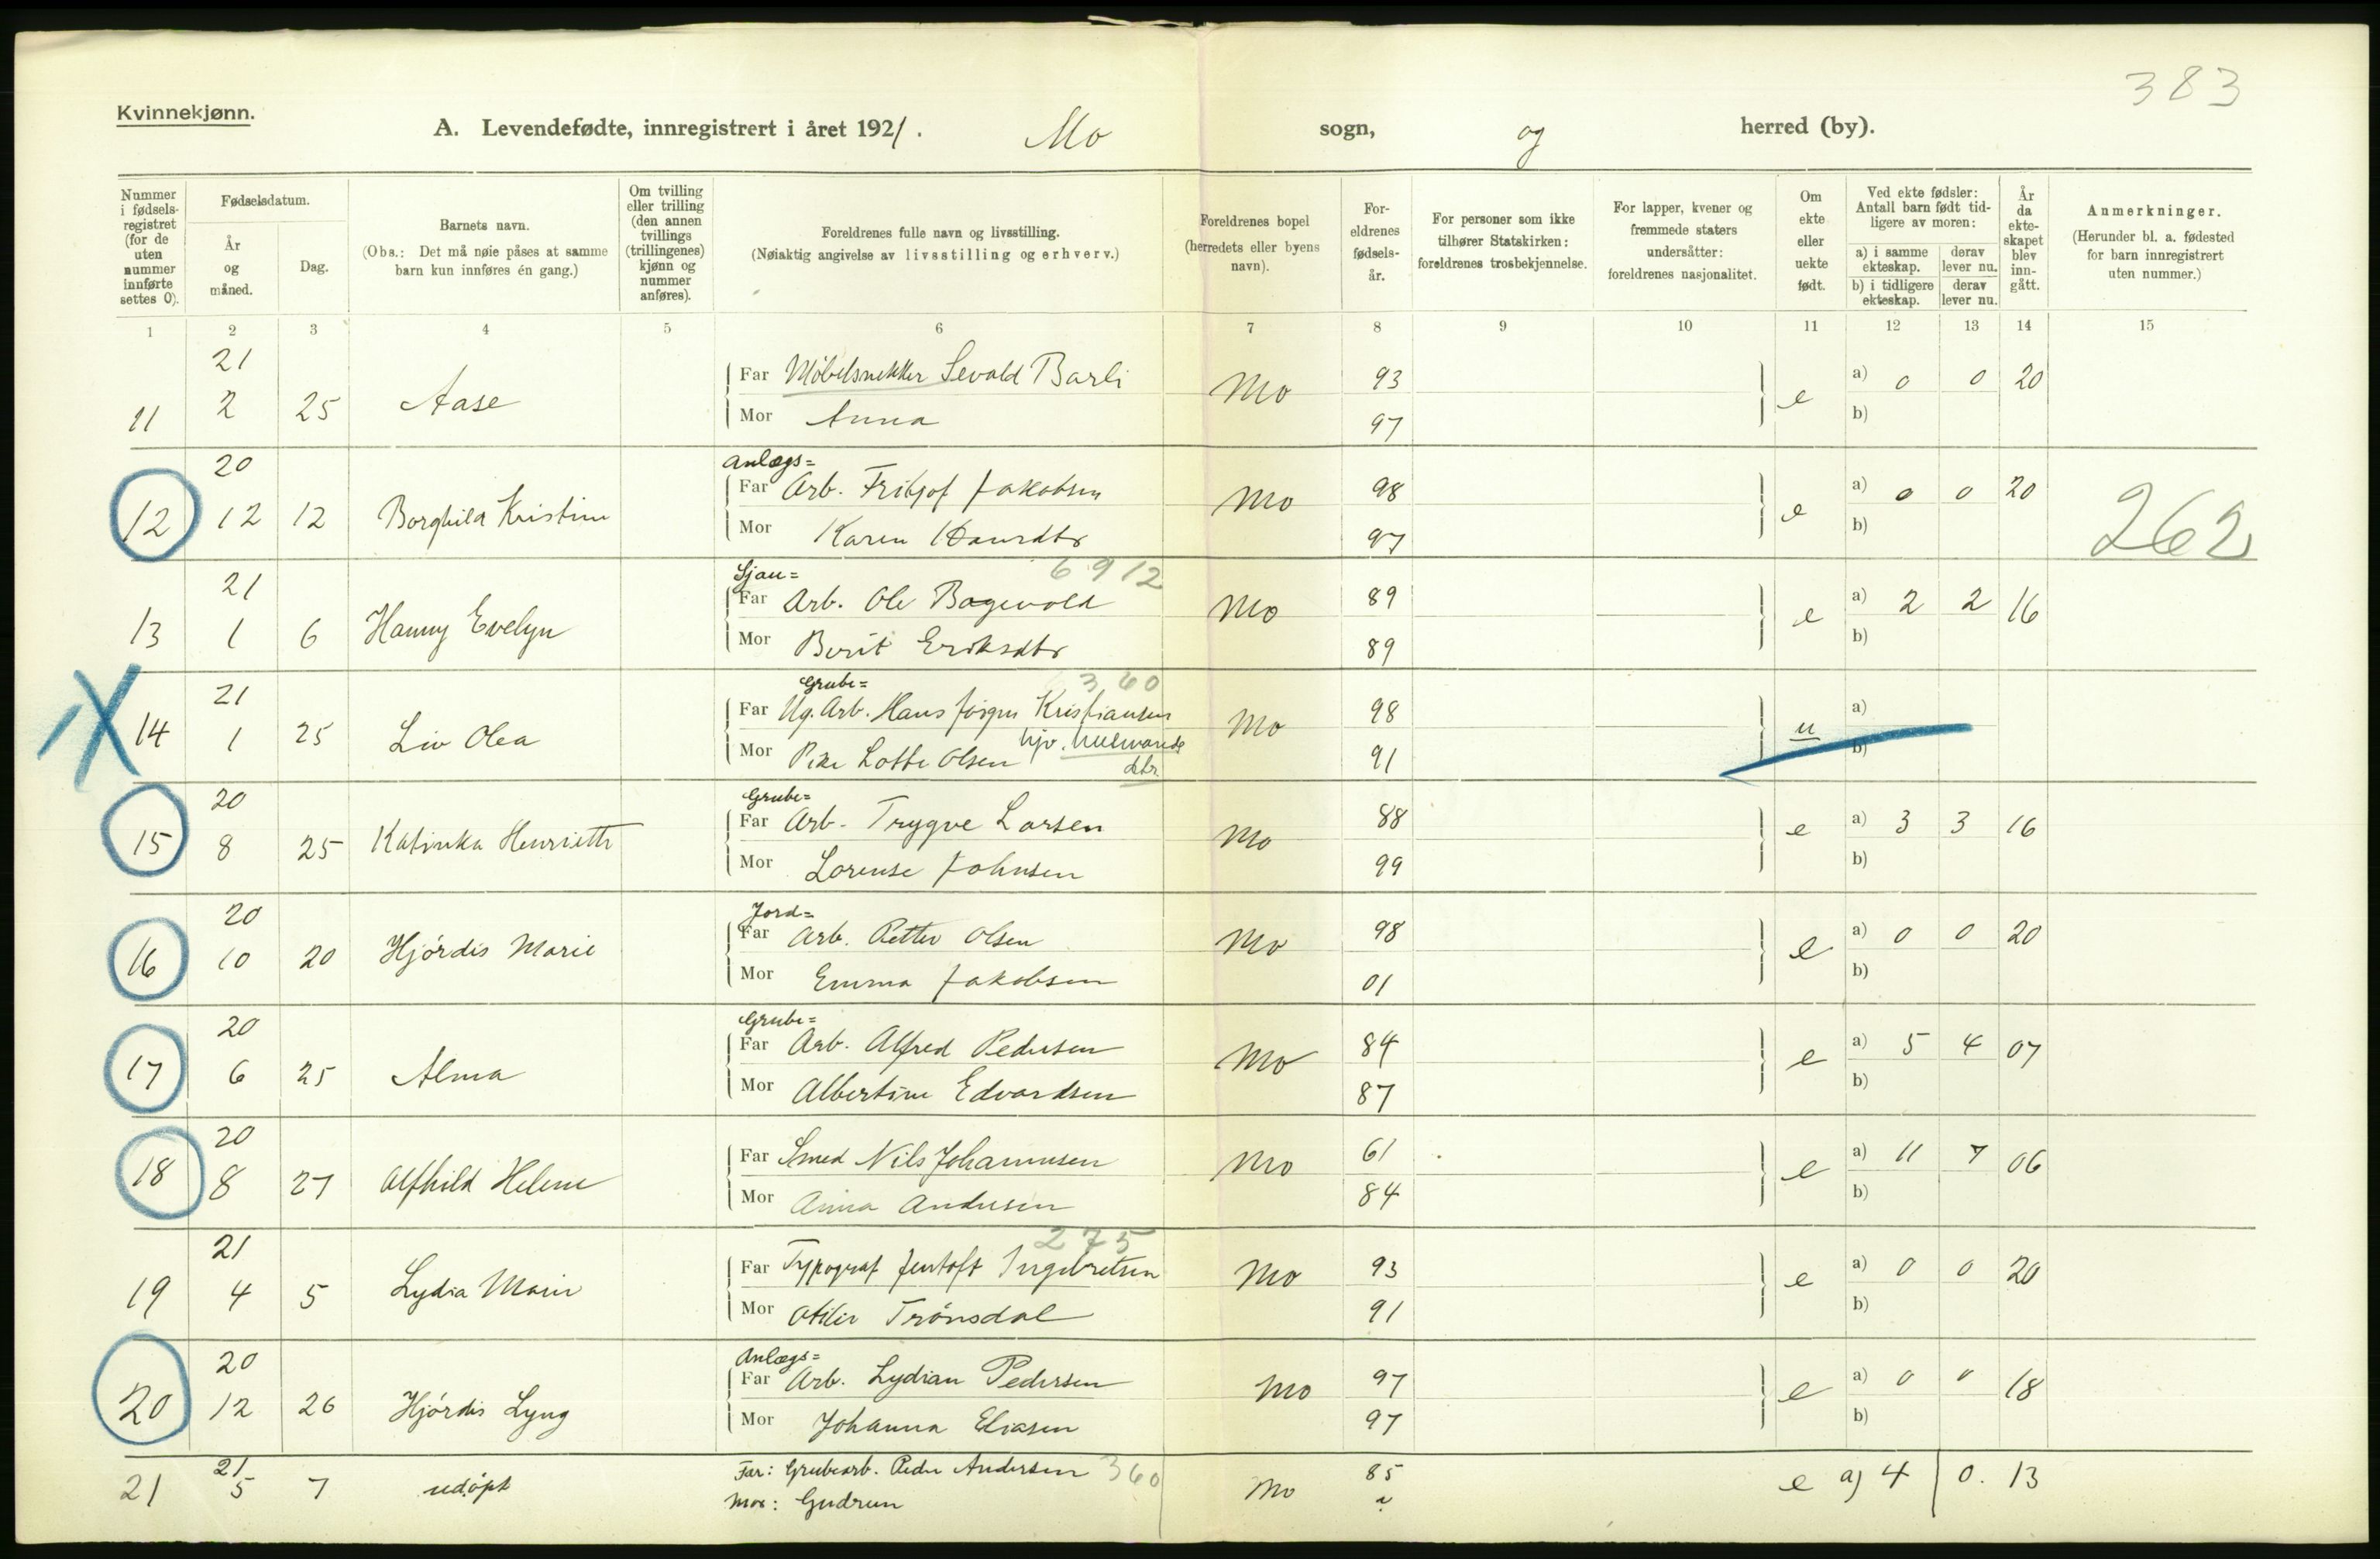 383
Kvinnekjønn.
A. Levendefødte, innregistrert i året 1921. Mo sogn, og herred (by).
Nummer i fødsels-registret (for de uten nummer innførte settes 0).
Fødselsdatum.
År og måned.
Dag.
Barnets navn.
(Obs.: Det må nøie påses at samme barn kun innføres én gang.)
Om tvilling eller trilling (den annen tvillings (trillingenes) kjønn og nummer anføres).
Foreldrenes fulle navn og livsstilling.
(Nøiaktig angivelse av livsstilling og erhverv.)
Foreldrenes bopel (herredets eller byens navn).
For-eldrenes fødsels-år.
For personer som ikke tilhører Statskirken: foreldrenes trosbekjennelse.
For lapper, kvener og fremmede staters undersåtter: foreldrenes nasjonalitet.
Om ekte eller uekte født.
Ved ekte fødsler: Antall barn født tid-ligere av moren:
a) i samme ekteskap. derav lever nu.
b) i tidligere ekteskap. derav lever nu.
År da ekte-skapet blev inn-gått.
Anmerkninger.
(Herunder bl. a. fødested for barn innregistrert uten nummer.)
1 2 3 4 5 6 7 8 9 10 11 12 13 14 15
21
Far Møbelsnekker Sevald Barli 93 a) 0 0 20
11 2 25 Aase Mo e
Mor Anna 97 b)
20 Anlægs=
Far Arb. Fritjof Jakobsen 98 a) 0 0 20
12 12 12 Borghild Kristine Mo e 262
Mor Karen 97 b)
21 Sjau= 6912
Far Arb. Ole Bogevold 89 a) 2 2 16
13 1 6 Hanny Evelyn Mo e
Mor Berit Eriksdtr 89 b)
21 Grube= 360
Far Ug. Arb. Hans Jörgen Kristiansen 98 a)
14 1 25 Liv Olea Mo u
Mor Pike Lotte Olsen hjv. 91 b)
dtr.
20 Grube=
Far Arb. Trygve Larsen 88 a) 3 3 16
15 8 25 Katinka Henriette Mo e
Mor Lorense Johnsen 99 b)
20 Jord=
Far Arb. Petter Olsen 98 a) 0 0 20
16 10 20 Hjördis Marie Mo e
Mor Emma Jakobsen 01 b)
20 Grube=
Far Arb. Alfred Pedersen 84 a) 5 4 07
17 6 25 Alma Mo e
Mor Albertine Edvardsen 87 b)
20
Far Smed Nils Johannesen 61 a) 11 7 06
18 8 27 Alfhild Helene Mo e
Mor Anna Andersen 84 b)
21 275
Far Typograf Jentoft Ingebretsen 93 a) 0 0 20
19 4 5 Lydia Marie Mo e
Mor Otilie Trönsdal 91 b)
20 Anlægs=
Far Arb. Lydian Pedersen 97 a) 0 0 18
20 12 26 Hjördis Lyng Mo e
Mor Johanna Eliasen 97 b)
21 Far: Grubearb. Peder Andersen 360 85
21 5 7 udöpt Mo e a) 4 0. 13
Mor: Gudrun